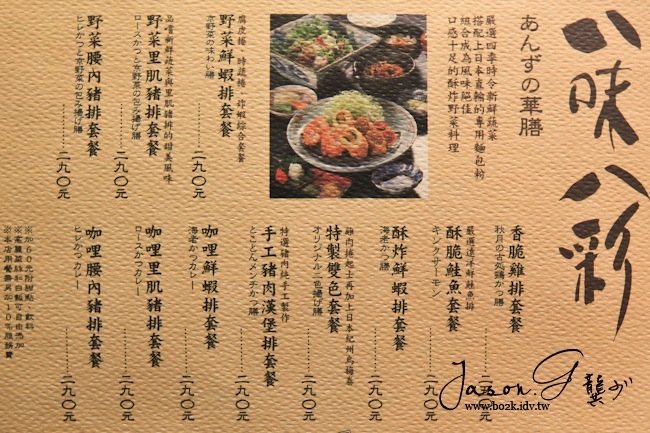 八味八彩
あんずの華膳
嚴選四季時令新鮮蔬菜
搭配上日本直輸的專用麵包粉
組合成為風味絕佳
口感十足的酥炸野菜料理
腐皮捲、時蔬捲、炸蝦綜合套餐
野菜鮮蝦排套餐
京野菜の味わい膳
二九〇元
品嘗新鮮蔬菜與里肌豬排的甜美風味
野菜里肌豬排套餐
ロースかつと京野菜の包み揚げ膳
二九〇元
野菜腰內豬排套餐
ヒレかつと京野菜の包み揚げ膳
二九〇元
香脆雞排套餐
秋月の古処鶏かつ膳
二九〇元
嚴選遠洋鮮鮭魚排
酥脆鮭魚套餐
キングサーモン
二九〇元
酥炸鮮蝦排套餐
海老かつ膳
二九〇元
雞肉捲起士再加上日本紀州烏梅卷
特製雙色套餐
オリジナル二色揚げ膳
二九〇元
特選豬肉純手工製作
手工豬肉漢堡排套餐
とことんメンチかつ膳
二九〇元
咖哩鮮蝦排套餐
海老かつカレー
二九〇元
咖哩里肌豬排套餐
ロースかつカレー
二九〇元
咖哩腰內豬排套餐
ヒレかつカレー
二九〇元
※加60元附甜點、飲料
※高麗菜絲料白飯可自由添加
※本店用餐需另加10%服務費
Jason.G 龔
www.bo2k.idv.tw